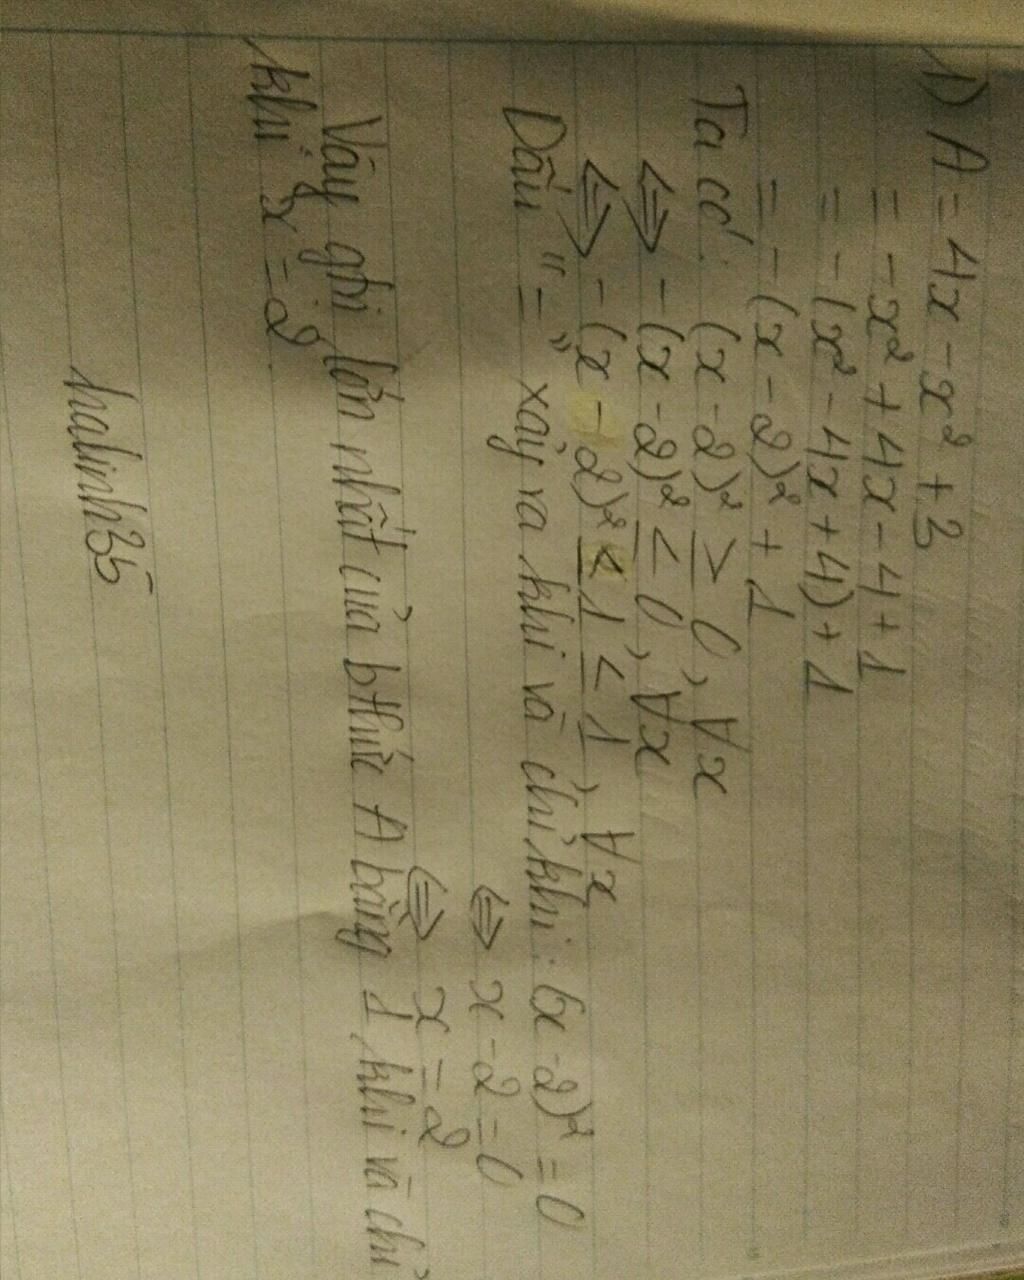 1) A = 4x - x² + 3
= - x² + 4x - 4 + 1
= - (x² - 4x + 4) + 1
= - (x - 2)² + 1
Ta có: (x - 2)² ≥ 0, ∀x
⇔ - (x - 2)² ≤ 0, ∀x
⇔ - (x - 2)² ≤ 1 ≤ 1, ∀x
Dấu "=" xảy ra khi và chỉ khi: (x - 2)² = 0
⇔ x - 2 = 0
⇔ x = 2
Vậy giá trị lớn nhất của bthức A bằng 1 khi và chỉ
khi x = 2
halinh35